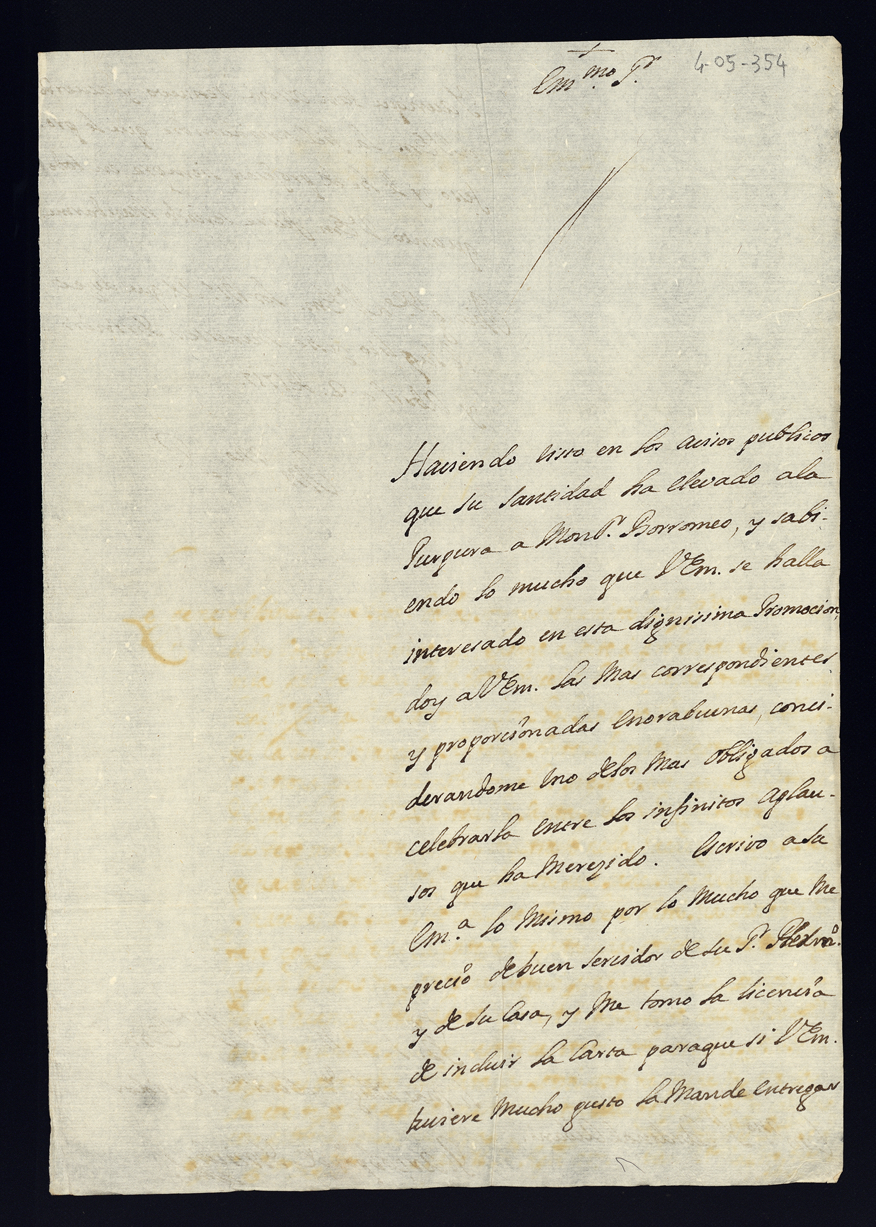 Em.mo S.r
4-05-354
Haviendo visto en los avisos publicos
que su santidad ha llevado ala
Purpura a Mons.r Borromeo, y sabi-
endo lo mucho que VEm. se halla
interesado en esta dignissima Promocion,
doy a VEm. las mas correspondientes,
y proporcionadas enorabuenas, consi-
derandome uno delos mas obligados a
celebrarla entre los infinitos aplau-
sos que ha merezido. Escrivo a su
Em.a lo mismo por lo mucho que me
precio de buen servidor de su S.r Herm.o
y de su Casa, y me tomo la licencia
de incluir la Carta paraque si VEm.
tuviere mucho gusto la mande entregar